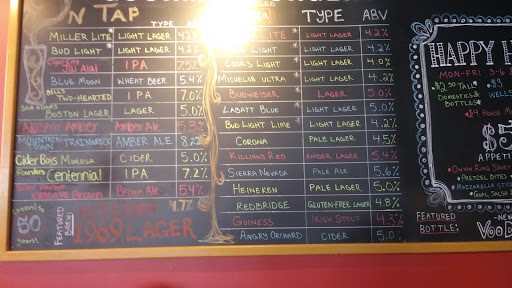 N TAP
TYPE ABV
MILLER LITE LIGHT LAGER 4.2%
BUD LIGHT * LIGHT LAGER 4.2%
JAI ALAI IPA 7.5%
BLUE MOON WHEAT BEER 5.4%
BELLS TWO-HEARTED IPA 7.0%
SAM ADAMS BOSTON LAGER LAGER 5.0%
AMBER AMBER ALE 5.3%
MOUNTAIN TOWN TRAINWRECK AMBER ALE 8.2%
CIDER BOYS MIMOSA CIDER 5.0%
FOUNDERS CENTENNIAL IPA 7.2%
BROWN BROWN ALE 5.4%
80
YEARS!
FEATURED BREW:
1969 LAGER 4.7%
TYPE ABV
LITE * LIGHT LAGER 4.2%
LIGHT * LIGHT LAGER 4.2%
COORS LIGHT * LIGHT LAGER 4.2%
MICHELOB ULTRA * LIGHT LAGER 4.2%
BUDWEISER * LAGER 5.0%
LABATT BLUE * LAGER 5.0%
BUD LIGHT LIME * LIGHT LAGER 4.2%
CORONA PALE LAGER 4.5%
KILLIAN'S RED AMBER LAGER 5.4%
SIERRA NEVADA PALE ALE 5.6%
HEINEKEN PALE LAGER 5.0%
REDBRIDGE GLUTEN-FREE LAGER 4.8%
GUINESS IRISH STOUT 4.3%
ANGRY ORCHARD CIDER 5.0
HAPPY H
MON-FRI 3-6
$2.50 TALL
DOMESTICS &
BOTTLES*
$3
WELLS
$4 HOUSE
APPETI
ONION RING
PRETZEL BITES
MOZZARELLA
FEATURED
BOTTLE:
-NEW
VOOD